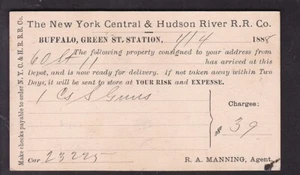 The New York Central & Hudson River R.R. Co.
BUFFALO, GREEN ST. STATION, 4/4 1888
The following property consigned to your address from
60 St 11 has arrived at this
Depot, and is now ready for delivery. If not taken away within Two
Days, it will be sent to store at YOUR RISK and EXPENSE.
1 Cs S Guns
Charges:
$ 39
Car 23225
R. A. MANNING, Agent.
Make checks payable to order N. Y. C. & H. R. R. R. Co.